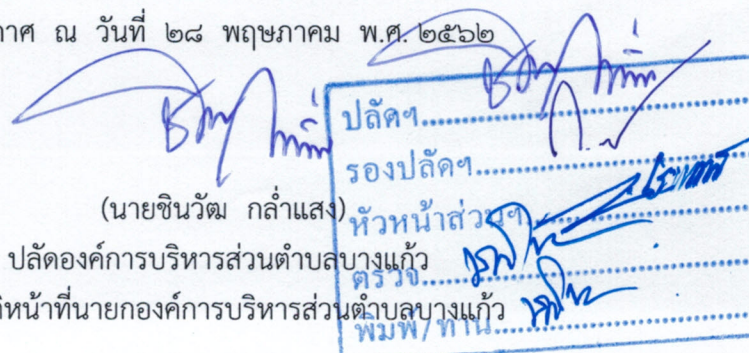 กาศ ณ วันที่ ๒๘ พฤษภาคม พ.ศ. ๒๕๖๒
(นายชินวัฒ กล่ำแสง)
ปลัดองค์การบริหารส่วนตำบลบางแก้ว
ติหน้าที่นายกองค์การบริหารส่วนตำบลบางแก้ว
ปลัดฯ
รองปลัดฯ
หัวหน้าส่วนฯ
ตรวจ
พิมพ์/ทาน